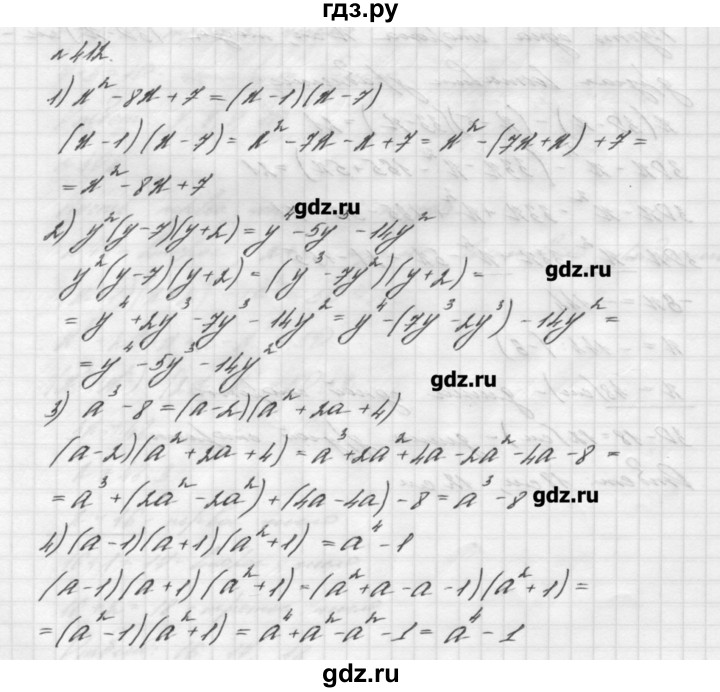 гдз.ру
№412.
1) x² - 8x + 7 = (x - 1)(x - 7)
(x - 1)(x - 7) = x² - 7x - x + 7 = x² - (7x + x) + 7 =
= x² - 8x + 7
gdz.ru
2) y²(y - 7)(y + 2) = y⁴ - 5y³ - 14y²
y²(y - 7)(y + 2) = (y³ - 7y²)(y + 2) =
gdz.ru
= y⁴ + 2y³ - 7y³ - 14y² = y⁴ - (7y³ - 2y³) - 14y² =
= y⁴ - 5y³ - 14y²
gdz.ru
3) a³ - 8 = (a - 2)(a² + 2a + 4)
(a - 2)(a² + 2a + 4) = a³ + 2a² + 4a - 2a² - 4a - 8 =
= a³ + (2a² - 2a²) + (4a - 4a) - 8 = a³ - 8
gdz.ru
4) (a - 1)(a + 1)(a² + 1) = a⁴ - 1
(a - 1)(a + 1)(a² + 1) = (a² + a - a - 1)(a² + 1) =
= (a² - 1)(a² + 1) = a⁴ + a² - a² - 1 = a⁴ - 1
gdz.ru